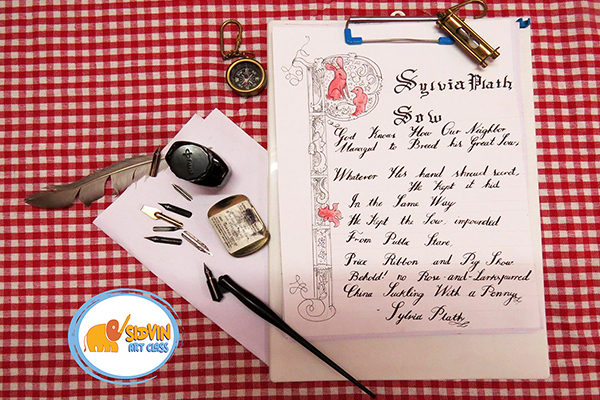 Sylvia Plath
Sow
God Knows How Our Neighbor
Managed to Breed his Great Sow,
Whatever His hand shrewd secret,
He Kept it hid
In the Same Way
He Kept the Sow, impounded
From Public Stare,
Price Ribbon and Pig Show
Behold! no Rose-and-Larkspurred
China Suckling With a Penny
- Sylvia Plath
SIDVIN
ART CLASS